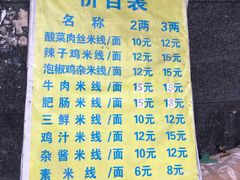 价目表
名 称 2两 3两
酸菜肉丝米线/面 10元 12元
辣子鸡米线/面 12元 15元
泡椒鸡杂米线/面 12元 15元
牛肉米线/面 15元 18元
肥肠米线/面 15元 18元
三鲜米线/面 10元 12元
鸡汁米线/面 12元 15元
杂酱米线/面 10元 12元
素米线/面 6元 8元